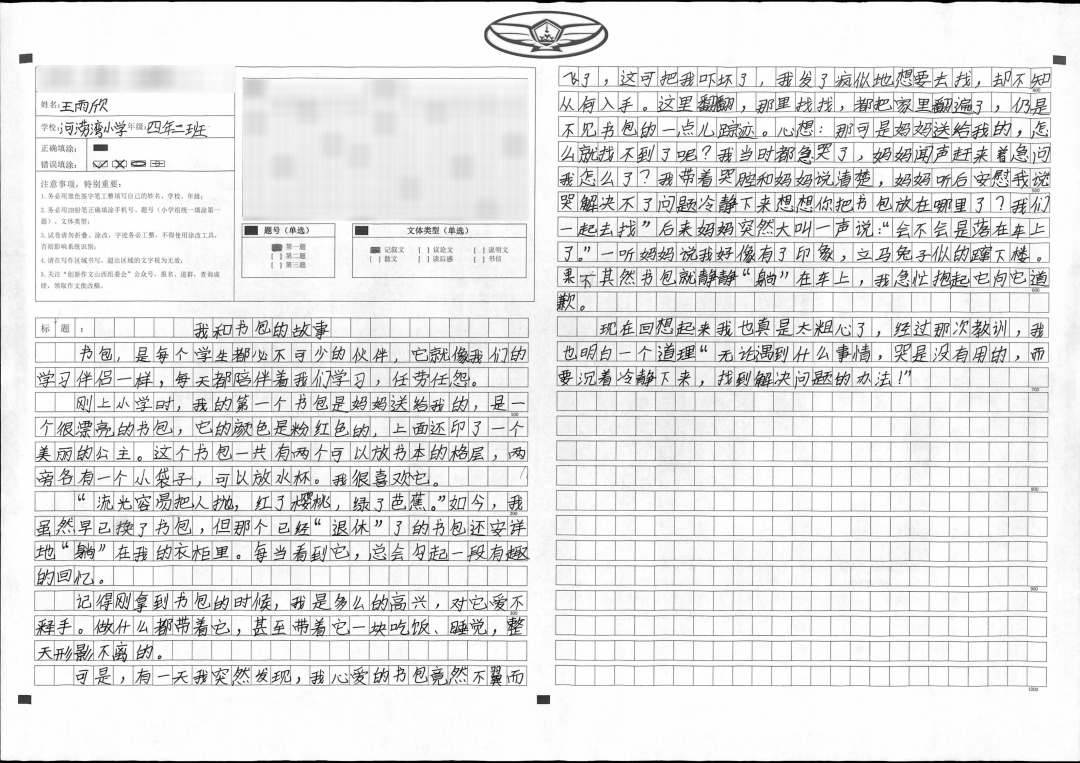 姓名:王雨欣
学校:河涝湾小学年级:四年二班
正确填涂:
错误填涂:
注意事项,特别重要:
1.务必用黑色签字笔工整填写自己的姓名,学校,年级;
2.务必用2B铅笔正确填涂手机号、题号(小学组统一填涂第一
题)、文体类型;
3.试卷请勿折叠、涂改,字迹务必工整,不得使用涂改工具,
否则影响系统识别;
4.请在写作区域书写,超出区域的文字视为无效;
5.关注“创新作文山西组委会”公众号,报名、进群、查询成
绩,领取作文批改稿。
题号(单选)
第一题
[ ] 第二题
[ ] 第三题
文体类型(单选)
记叙文 [ ] 议论文 [ ] 说明文
[ ] 散文 [ ] 读后感 [ ] 书信
标题:我和书包的故事
书包,是每个学生都必不可少的伙伴,它就像我们的
学习伴侣一样,每天都陪伴着我们学习,任劳任怨。
刚上小学时,我的第一个书包是妈妈送给我的,是一
100
个很漂亮的书包,它的颜色是粉红色的,上面还印了一个
美丽的公主。这个书包一共有两个可以放书本的格层,两
旁各有一个小袋子,可以放水杯。我很喜欢它。
“流光容易把人抛,红了樱桃,绿了芭蕉。”如今,我
200
虽然早已换了书包,但那个已经“退休”了的书包还安详
地“躺”在我的衣柜里。每当看到它,总会勾起一段有趣
的回忆。
记得刚拿到书包的时候,我是多么的高兴,对它爱不
300
释手。做什么都带着它,甚至带着它一块吃饭、睡觉,整
天形影不离的。
可是,有一天我突然发现,我心爱的书包竟然不翼而
飞了,这可把我吓坏了,我发了疯似地想要去找,却不知
400
从何入手。这里翻翻,那里找找,都把家里翻遍了,仍是
不见书包的一点儿踪迹。心想:那可是妈妈送给我的,怎
么就找不到了呢?我当时都急哭了,妈妈闻声赶来着急问
我怎么了?我带着哭腔和妈妈说清楚,妈妈听后安慰我说
500
哭解决不了问题冷静下来想想你把书包放在哪里了?我们
一起去找”后来妈妈突然大叫一声说:“会不会是落在车上
了。”一听妈妈说我好像有了印象,立马兔子似的蹿下楼。
果不其然书包就静静“躺”在车上,我急忙抱起它向它道
600
歉。
现在回想起来我也真是太粗心了,经过那次教训,我
也明白一个道理“无论遇到什么事情,哭是没有用的,而
要沉着冷静下来,找到解决问题的办法!”
700
800
900
1000